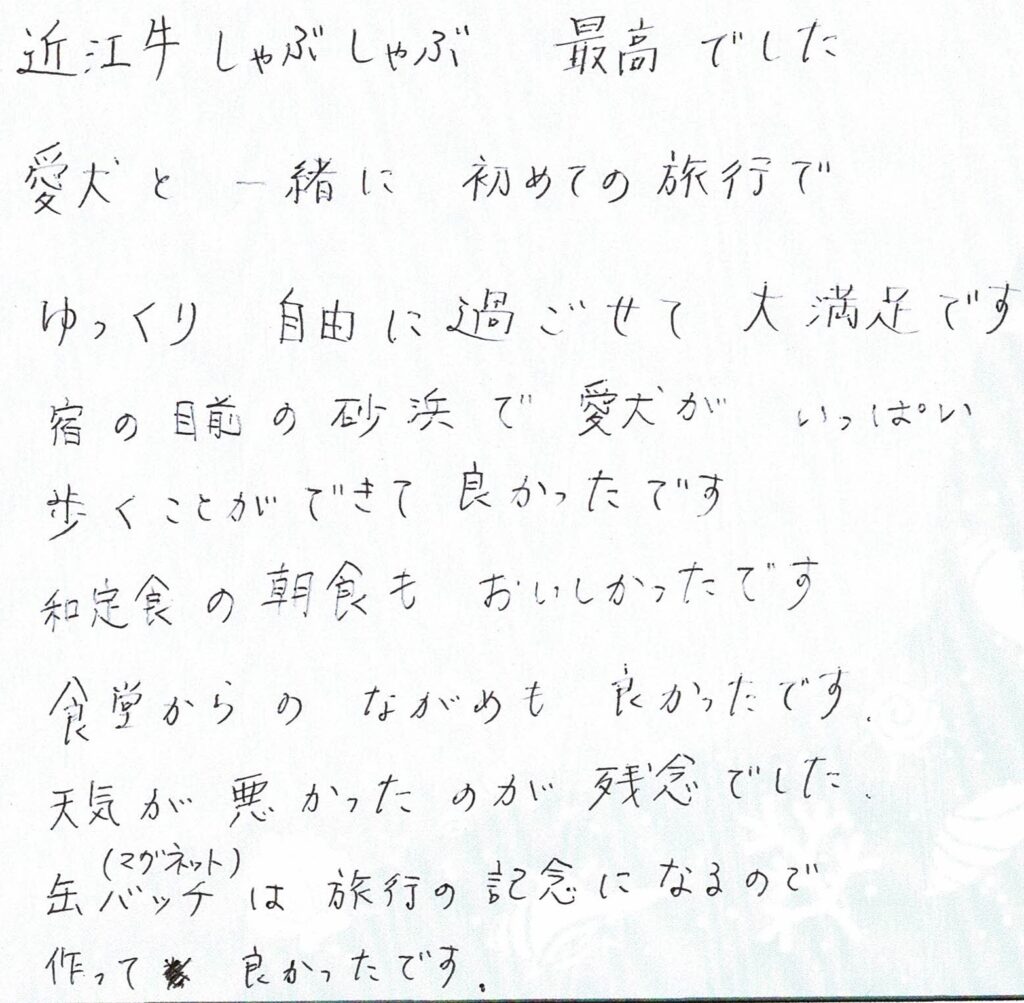 近江牛しゃぶしゃぶ 最高でした
愛犬と 一緒に 初めての旅行で
ゆっくり 自由に過ごせて 大満足です
宿の目前の砂浜で 愛犬が いっぱい
歩くことができて 良かったです
和定食の朝食も おいしかったです
食堂からの ながめも 良かったです.
天気が悪かったのが 残念でした.
(マグネット)
缶バッチは 旅行の記念になるので
作って 良かったです.